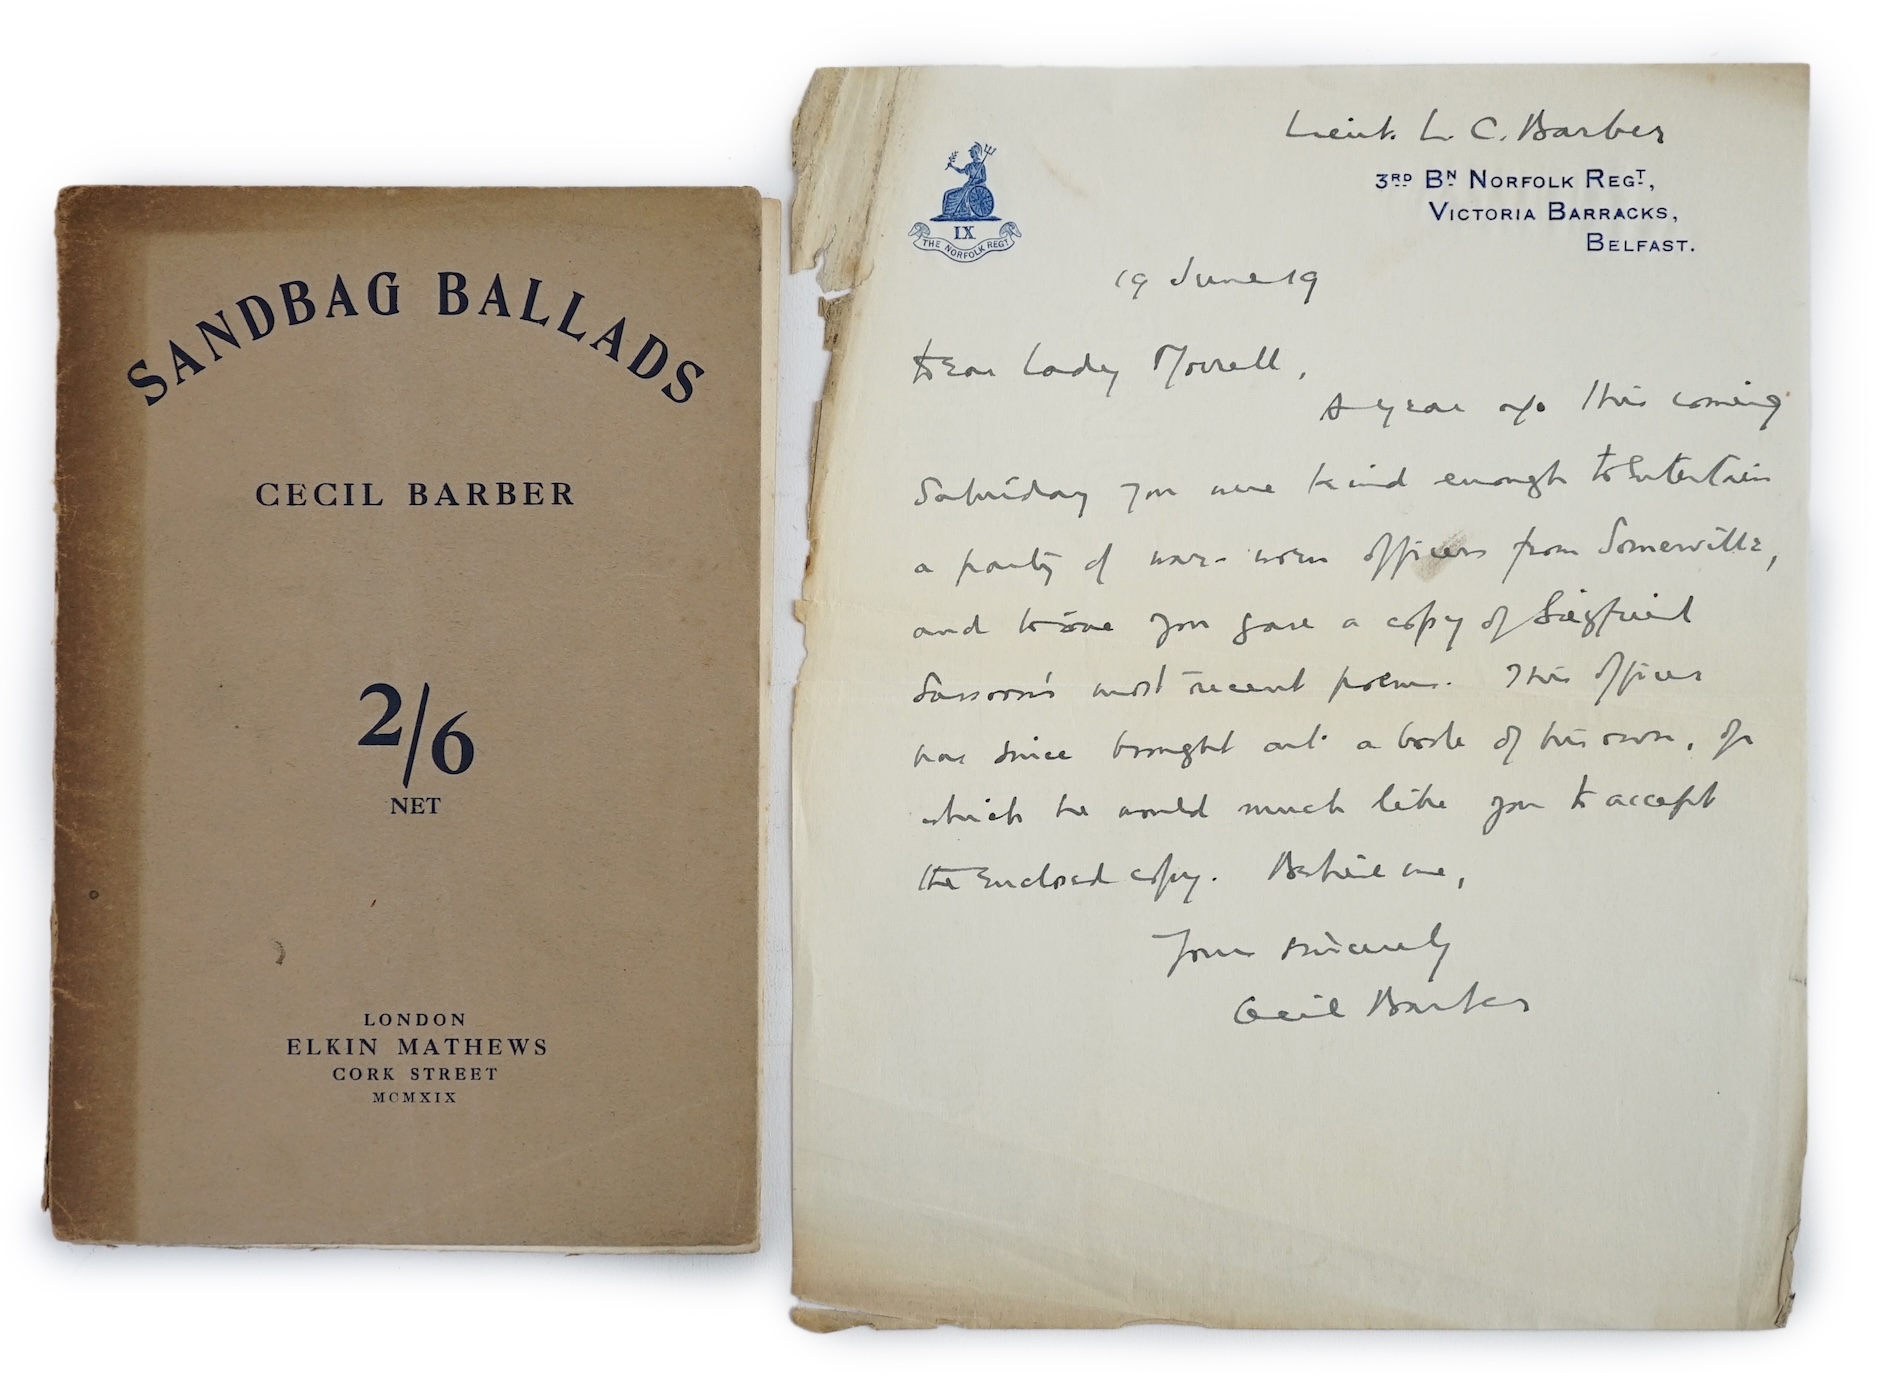 SANDBAG BALLADS
CECIL BARBER
2/6
NET
LONDON
ELKIN MATHEWS
CORK STREET
MCMXIX
Lieut. L. C. Barber
3RD BN NORFOLK REGT,
VICTORIA BARRACKS,
BELFAST.
IX
THE NORFOLK REGT
19 June 19
Dear Lady Morrell,
A year ago this coming
Saturday you were kind enough to entertain
a party of war-worn officers from Somerville,
and to one you gave a copy of Siegfried
Sassoon's most recent poems. This officer
has since brought out a book of his own, of
which he would much like you to accept
the enclosed copy. Believe me,
Yours sincerely
Cecil Barber